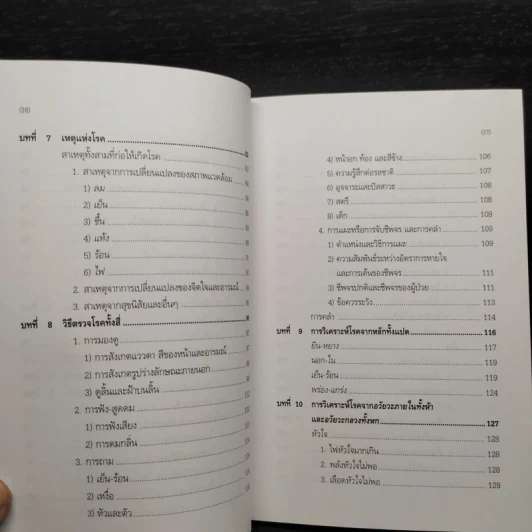 (16)
บทที่ 7 เหตุแห่งโรค
สาเหตุทั้งสามที่ก่อให้เกิดโรค
1. สาเหตุจากการเปลี่ยนแปลงของสภาพแวดล้อม
1) ลม
2) เย็น
3) ชื้น
4) แห้ง
5) ร้อน
6) ไฟ
2. สาเหตุจากการเปลี่ยนแปลงของจิตใจและอารมณ์
3. สาเหตุจากสุขนิสัยและอื่นๆ
บทที่ 8 วิธีตรวจโรคทั้งสี่
1. การมองดู
1) การสังเกตแววตา สีของหน้าและอารมณ์
2) การสังเกตรูปร่างลักษณะภายนอก
3) ดูลิ้นและฝ้าบนลิ้น
2. การฟัง-สูดดม
1) การฟังเสียง
2) การดมกลิ่น
3. การถาม
1) เย็น-ร้อน
2) เหงื่อ
3) หัวและตัว
(17)
4) หน้าอก ท้อง และสีข้าง 106
5) ความรู้สึกต่อรสชาติ 107
6) อุจจาระและปัสสาวะ 108
7) สตรี 109
8) เด็ก 109
4. การแมะหรือการจับชีพจร และการคลำ 109
1) ตำแหน่งและวิธีการแมะ 109
2) ความสัมพันธ์ระหว่างอัตราการหายใจ
และการเต้นของชีพจร 111
3) ชีพจรปกติและชีพจรของผู้ป่วย 111
4) ข้อควรระวัง 113
การคลำ 114
บทที่ 9 การวิเคราะห์โรคจากหลักทั้งแปด 116
ยิน-หยาง 117
นอก-ใน 119
เย็น-ร้อน 119
พร่อง-แกร่ง 124
บทที่ 10 การวิเคราะห์โรคจากอวัยวะภายในทั้งห้า
และอวัยวะกลวงทั้งหก 127
หัวใจ 128
1. ไฟหัวใจมากเกิน 128
2. พลังหัวใจไม่พอ 128
3. เลือดหัวใจไม่พอ 129